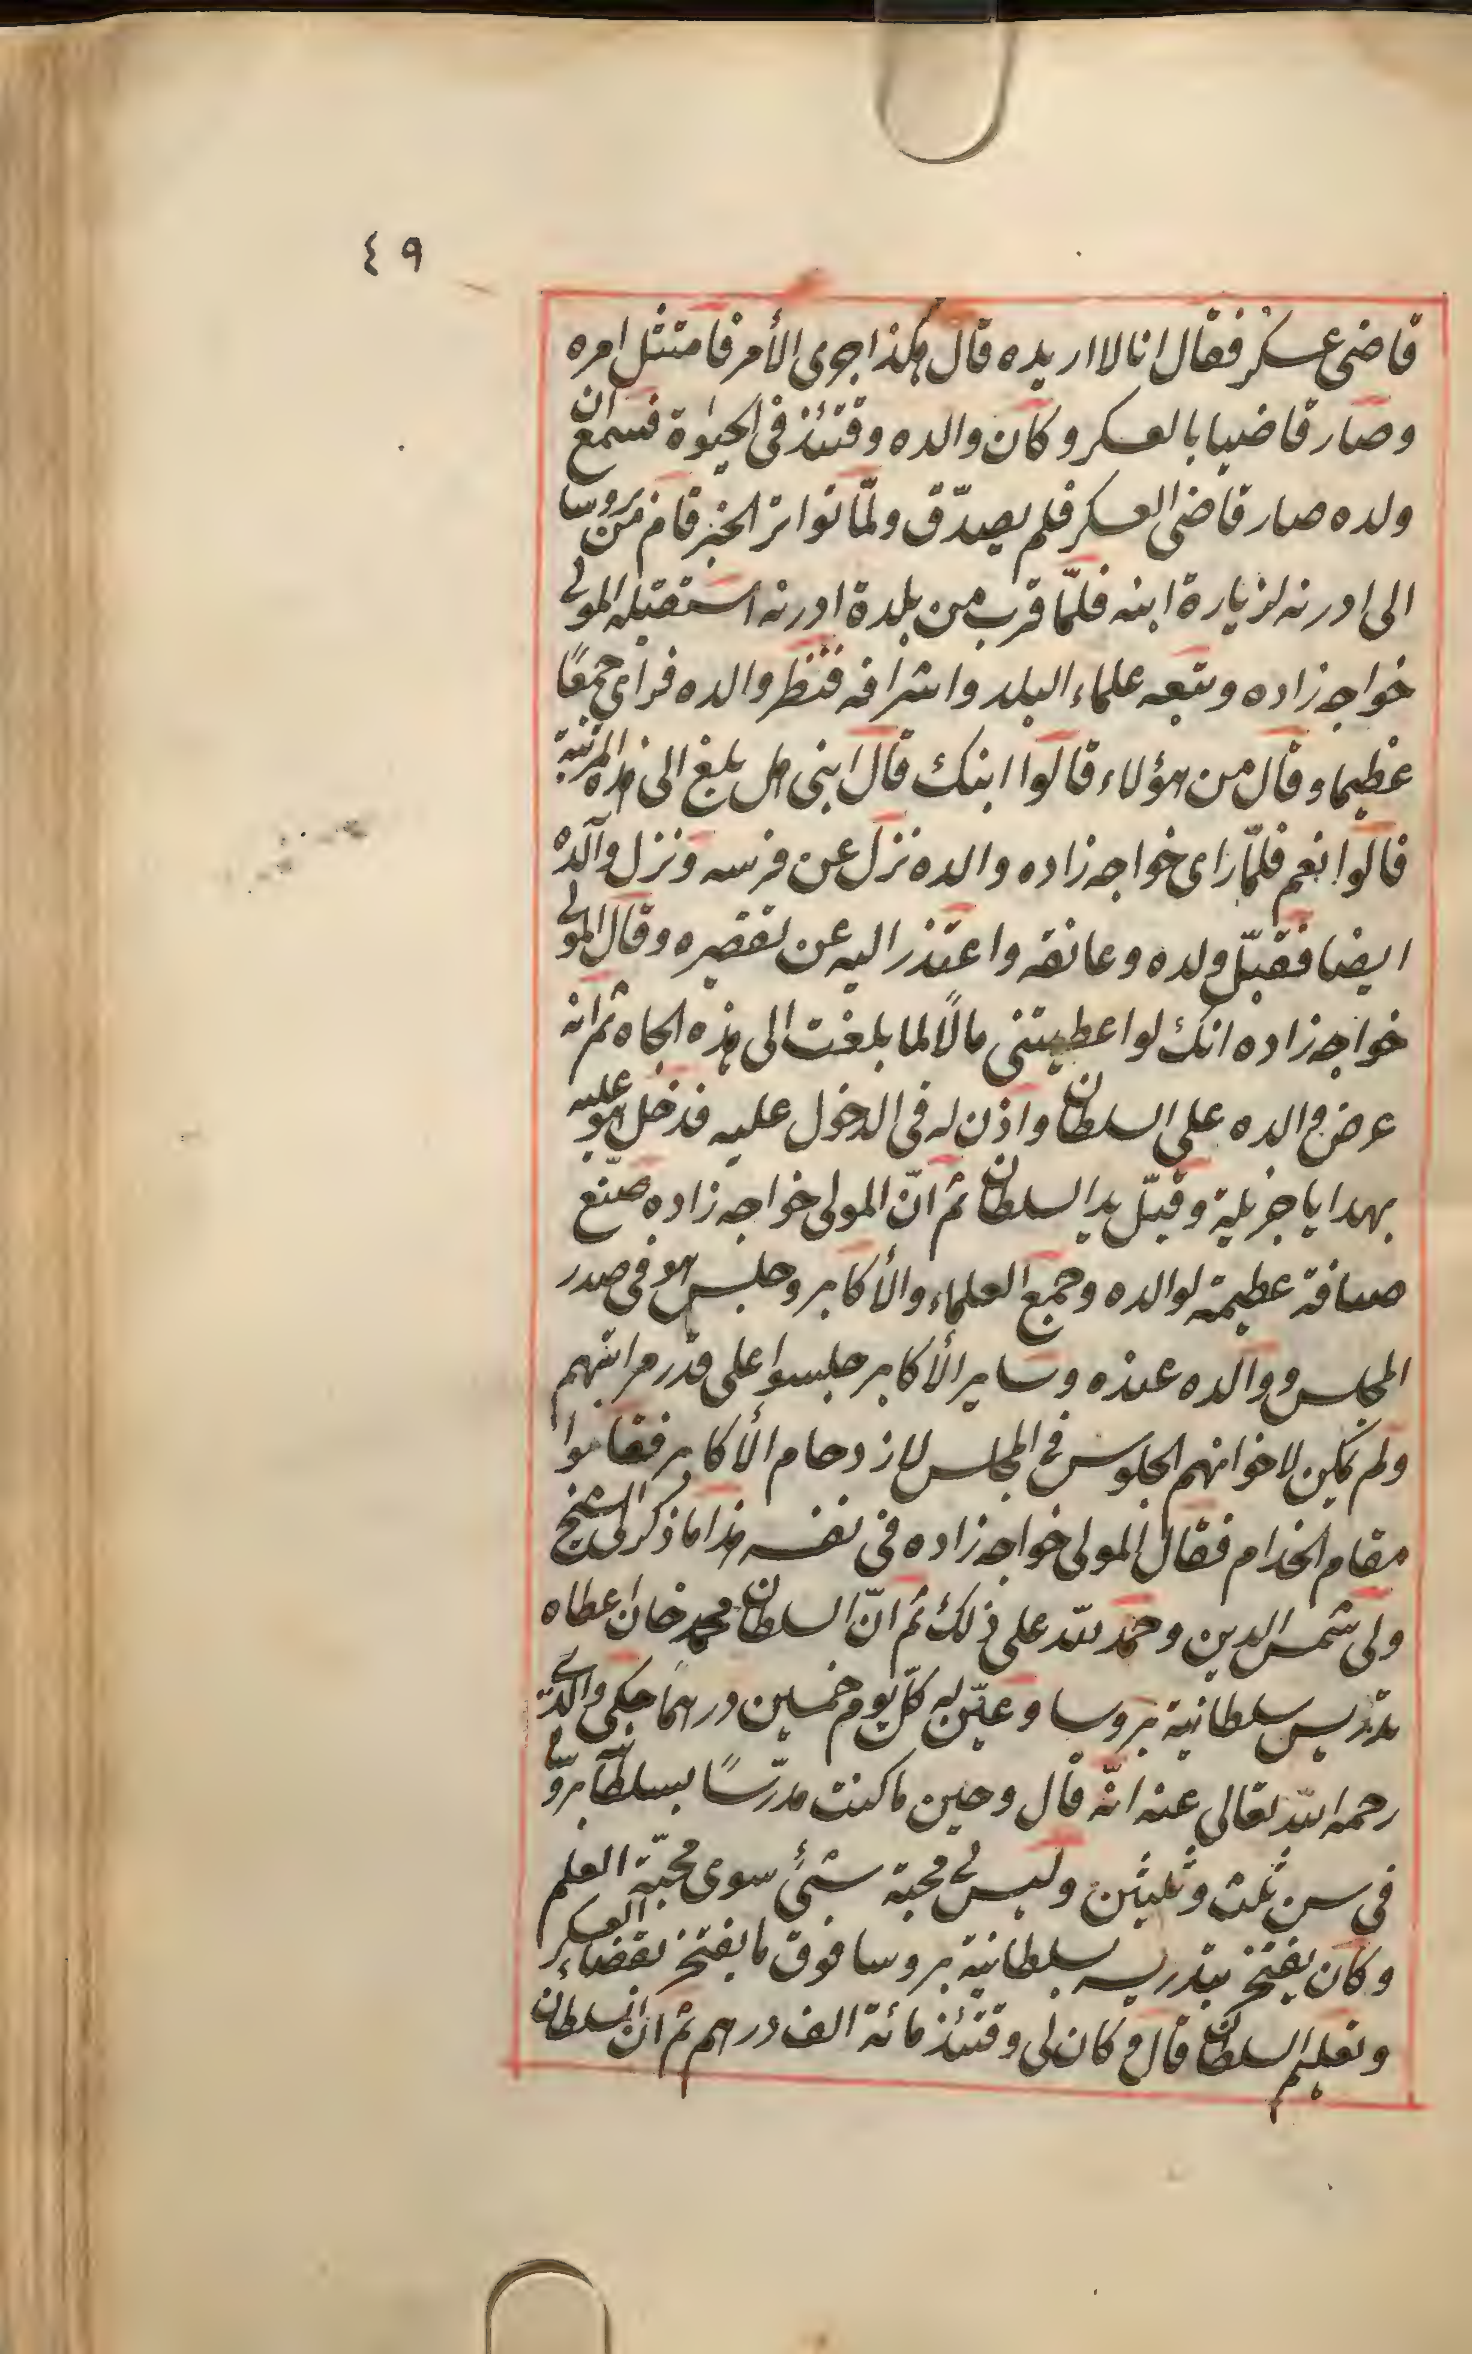 ٤٩
قاضى عسكر فقال انا لا اريده قال هكذا جرى الأمر فامتثل امره
وصار قاضيا بالعسكر وكان والده وقتئذ فى الحيوة فسمع ان
ولده صار قاضى العسكر فلم يصدّق ولمّا تواتر الخبر قام من بروسا
الى ادرنه لزيارة ابنه فلمّا قرب من بلدة ادرنه استقبله المولى
خواجه زاده وتبعه علماء البلد واشرافه فنظر والده فرأى جمعًا
عظيما وقال من هؤلاء قالوا ابنك قال ابنى هل بلغ الى هذه المرتبة
قالوا نعم فلمّا رأى خواجه زاده والده نزل عن فرسه ونزل والده
ايضا فقبّل ولده وعانقه واعتذر اليه عن تقصيره وقال المولى
خواجه زاده انك لو اعطيتنى مالًا لما بلغت الى هذه الجاه ثم انه
عرض والده على السلطان واذن له فى الدخول عليه فدخل هو عليه
بهدايا جزيلة وقبّل يد السلطان ثم انّ المولى خواجه زاده صنّع
ضيافة عظيمة لوالده وجمع العلماء والأكابر وجلس هو فى صدر
المجلس ووالده عنده وساير الأكابر جلسوا على قدر مراتبهم
ولم يمكن لاخوانهم الجلوس فى المجلس لازدحام الأكابر فقاموا
مقام الخدام فقال المولى خواجه زاده فى نفسه هذا ما ذكر لى الشيخ
ولى شمس الدين وحمد لله على ذلك ثم انّ السلطان محمد خان اعطاه
تدريس سلطانية بروسا وعيّن له كلّ يوم خمسين درهمًا حكى والدى
رحمه الله تعالى عنه انّه قال وحين ما كنت مدرّسًا بسلطانية بروسا
فى سن ثلث وثلثين وليس لى محبة شئ سوى محبّة العلم
وكان يفتخر بتدريس سلطانية بروسا فوق ما يفتخر بقضاء العسكر
وتعليم السلطان قال وكان لى وقتئذ مائة الف درهم ثم ان السلطان